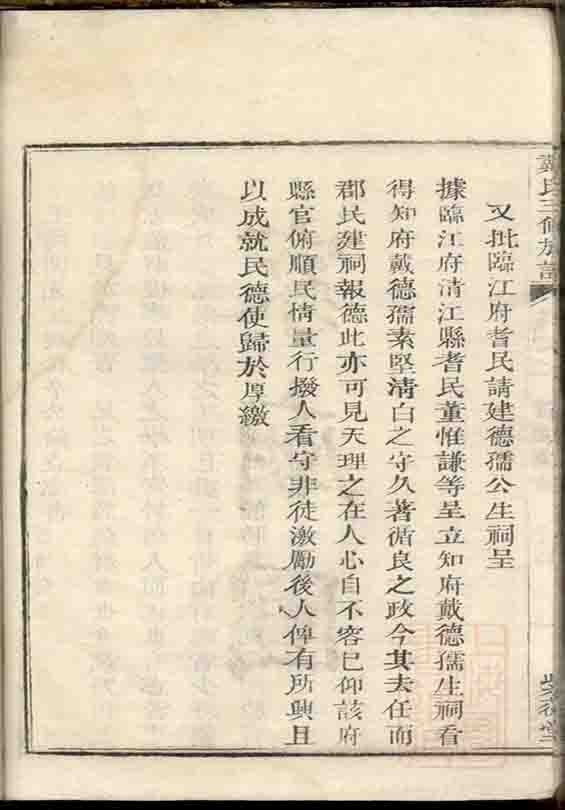 戴氏三修族譜
又批臨江府耆民請建德孺公生祠呈
據臨江府清江縣耆民董惟謙等呈立知府戴德孺生祠看
得知府戴德孺素堅淸白之守久著循良之政今其去任而
郡民建祠報德此亦可見天理之在人心自不容已仰該府
縣官俯順民情量行撥人看守非徒激勵後人俾有所興且
以成就民德使歸於厚繳